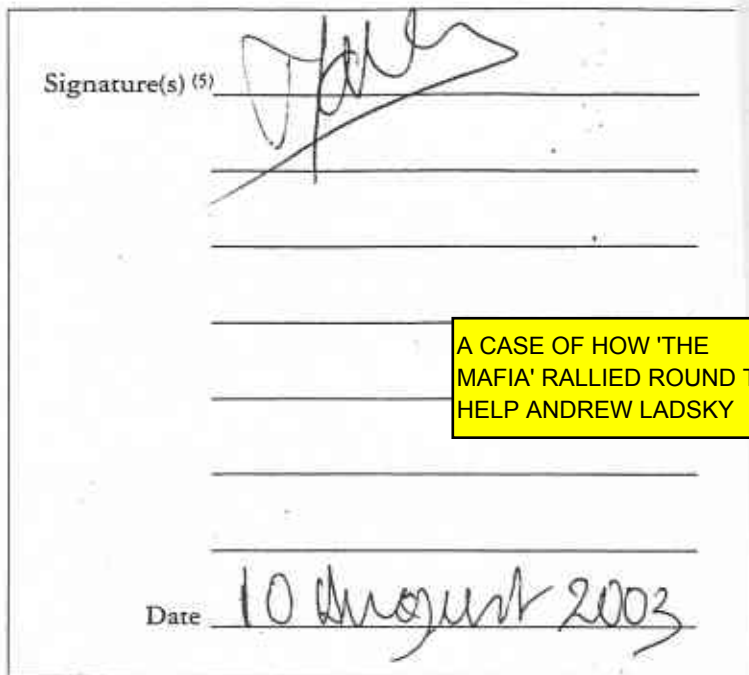 Signature(s) (5)
A CASE OF HOW 'THE
MAFIA' RALLIED ROUND T
HELP ANDREW LADSKY
Date 10 August 2003